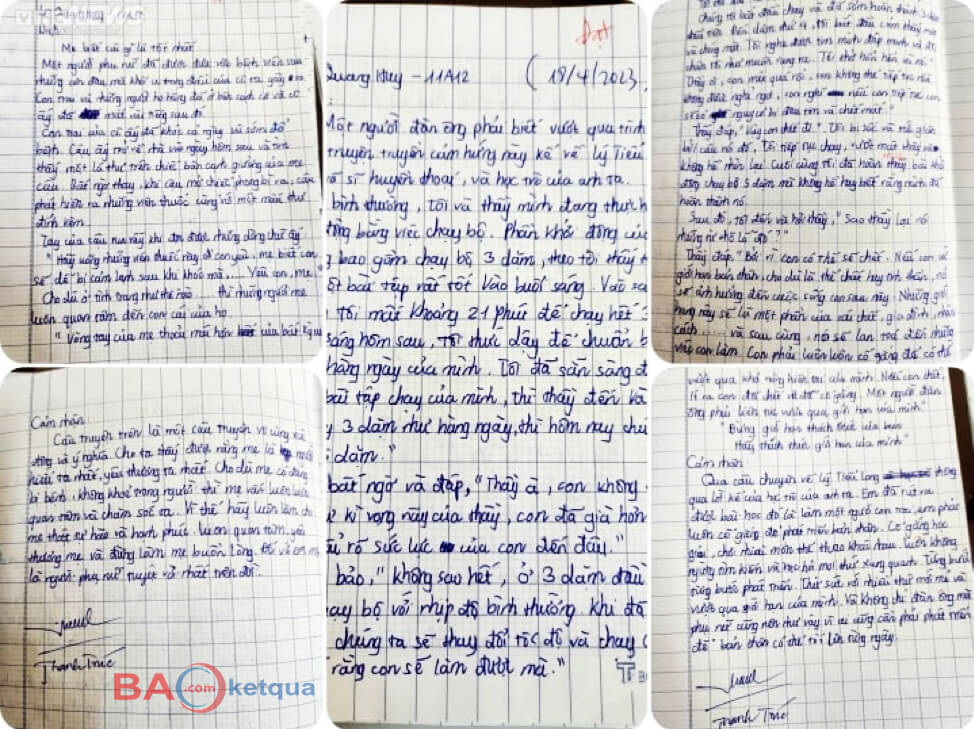 Dịch
Mẹ biết cái gì là tốt nhất
Một người phụ nữ đã được đưa vào bệnh viện sau
những cơn đau mà khối u trong đầu của cô ta gây ra.
Con trai và những người họ hàng đã ở bên cạnh cô và cô
ấy đã mất vài tiếng sau đó.
Con trai của cô ấy đã khóc cả ngày và sớm đổ
bệnh. Cậu ấy trở về nhà vào ngày hôm sau và tình
thấy một lá thư trên chiếc bàn cạnh giường của mẹ
cậu. Bất ngờ thay, khi cậu mở chiếc phong bì ra, cậu
phát hiện ra những viên thuốc cùng với một mẩu thư
đính kèm.
Tay của cậu run rẩy khi đọc được những dòng chữ ấy
"Hãy uống những viên thuốc này đi con yêu, mẹ biết con
sẽ dễ bị cảm lạnh sau khi khóc mà,... Yêu con, mẹ."
Cho dù ở tình trạng như thế nào ... thì những người mẹ
luôn quan tâm đến con cái của họ.
"Vòng tay của mẹ thoải mái hơn của bất kì ai
Cảm nhận:
Câu truyện trên là một câu truyện vô cùng xúc
động và ý nghĩa. Cho ta thấy được rằng mẹ là người
hiểu ta nhất, yêu thương ta nhất. Cho dù mẹ có đang
bị bệnh, không khoẻ trong người thì mẹ vẫn luôn luôn
quan tâm và chăm sóc ta. Vì thế hãy luôn làm cho
mẹ thật tự hào và hạnh phúc, luôn quan tâm, yêu
thương mẹ và đừng làm mẹ buồn lòng. Đối với em mẹ
là người phụ nữ tuyệt vời nhất trên đời.
Thanh Trúc
BAO.com
ketqua
Đạt
Quang Huy - 11A12 (18/4/2023)
Một người đàn ông phải biết vượt qua trình
truyện truyền cảm hứng này kể về Lý Tiểu
sĩ huyền thoại, và học trò của anh ta.
bình thường, tôi và thầy mình đang thực h
động bằng việc chạy bộ. Phần khởi động của
bao gồm chạy bộ 3 dặm, theo tôi thấy t
bài tập rất tốt vào buổi sáng. Vào sá
tôi mất khoảng 21 phút để chạy hết 3
sáng hôm sau, tôi thức dậy để chuẩn b
hằng ngày của mình. Tôi đã sẵn sàng đ
bài tập chạy của mình, thì thầy đến và
3 dặm như hằng ngày, thì hôm nay chú
dặm."
bất ngờ và đáp, "Thầy à, con không
kì vọng này của thầy, con đã già hơn
rõ sức lực của con đến đây."
bảo, "không sao hết, ở 3 dặm đầu
chạy bộ với nhịp độ bình thường. Khi đã
chúng ta sẽ thay đổi tốc độ và chạy c
rằng con sẽ làm được mà."
Chúng tôi bắt đầu chạy và đã sớm hoàn thành 3 dặm
đầu tiên. Đến dặm thứ 4, tôi bắt đầu cảm thấy mệt
và chóng mặt. Tôi nghe được tim mình đập mạnh và đôi
chân tôi như muốn rụng ra. Tôi thở hổn hển và nói "
Thầy ơi, con mệt quá rồi, con không thể tiếp tục nếu
không được nghỉ ngơi, con nghĩ nếu con tiếp tục con
sẽ có nguy cơ bị đau tim và chết mất."
Thầy đáp, "Vậy con chết đi". Tôi bị sốc và mất giận
bởi câu nói đó. Tôi tiếp tục chạy, vượt mặt thầy và
không hề nhìn lại. Cuối cùng tôi đã hoàn thành bài khởi
động chạy bộ 5 dặm mà không hề hay biết rằng mình đã
hoàn thành nó.
Sau đó, tôi đến và hỏi thầy, "Sao thầy lại nói
những từ thô lỗ đó?"
Thầy đáp, "Bởi vì con có thể sẽ chết. Nếu con vô
giới hạn bản thân, cho dù là thể chất hay tinh thần, nó
sẽ ảnh hưởng đến cuộc sống con sau này. Những giới
hạng này sẽ là một phần của vóc chất, gia đình, nhân
cách... và sau cùng, nó sẽ lan toả đến những
việc con làm. Con phải luôn luôn cố gắng để có thể
vượt qua khả năng hiện tại của mình. Nếu con chết,
ít ra con đã chết vì đã cố gắng. Một người đàn
ông phải liên tục vượt qua giới hạn của mình"
"Đừng giới hạn thách thức của bạn
Hãy thách thức giới hạn của mình"
Cảm nhận
Qua câu chuyện về Lý Tiểu Long thông
qua lời kể của học trò của anh ta. Em đã rút ra
được bài học đó là làm một người con trai, em phải
luôn cố gắng để phát triển bản thân. Cố gắng học
giỏi, chơi nhiều môn thể thao khác nhau. Luôn không
ngừng tìm kiếm và học hỏi mọi thứ xung quanh. Từng bước
từng bước phát triển. Thử sức với nhiều thứ mới mẻ và
vượt qua giới hạn của mình. Và không chỉ đàn ông mà
phụ nữ cũng nên như vậy vì ai cũng cần phải phát triển
để bản thân có thể tốt lên từng ngày.
Thanh Trúc